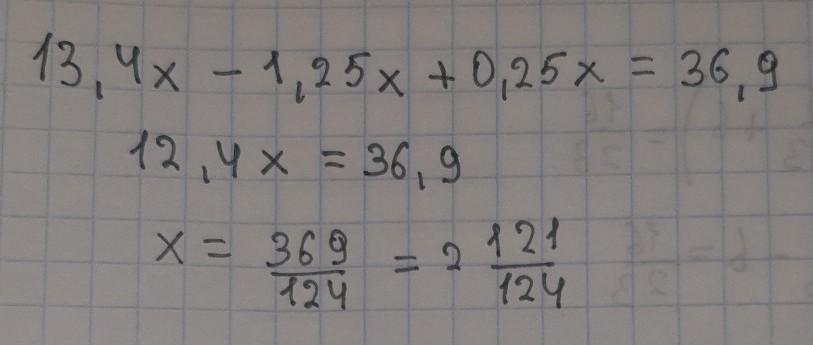 13,4x - 1,25x + 0,25x = 36,9
12,4x = 36,9
x = 369/124 = 2 121/124